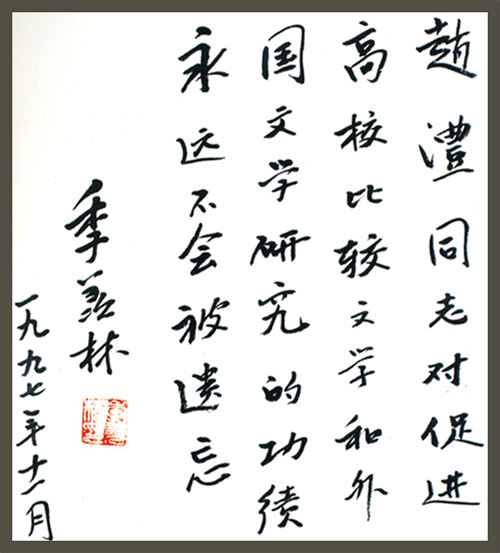 赵澧同志对促进
高校比较文学和外
国文学研究的功绩
永远不会被遗忘
季羡林
一九九七年十一月